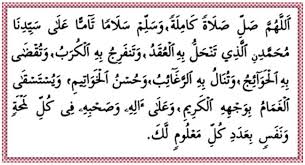 اَللّٰهُمَّ صَلِّ صَلَاةً كَامِلَةً،وَسَلِّمْ سَلَامًا تَامًّا عَلَى سَيِّدِنَا
مُحَمَّدِنِ الَّذِي تَنْحَلُّ بِهِ الْعُقَدُ،وَتَنْفَرِجُ بِهِ الْكُرَبُ،وَتُقْضَى
بِهِ الْحَوَائِجُ،وَتُنَالُ بِهِ الرَّغَائِبُ،وَحُسْنُ الْخَوَاتِيمِ،وَيُسْتَسْقَى
الْغَمَامُ بِوَجْهِهِ الْكَرِيمِ،وَعَلَى ءَالِهِ وَصَحْبِهِ فِي كُلِّ لَمْحَةٍ
وَنَفَسٍ بِعَدَدِ كُلِّ مَعْلُومٍ لَّكَ.